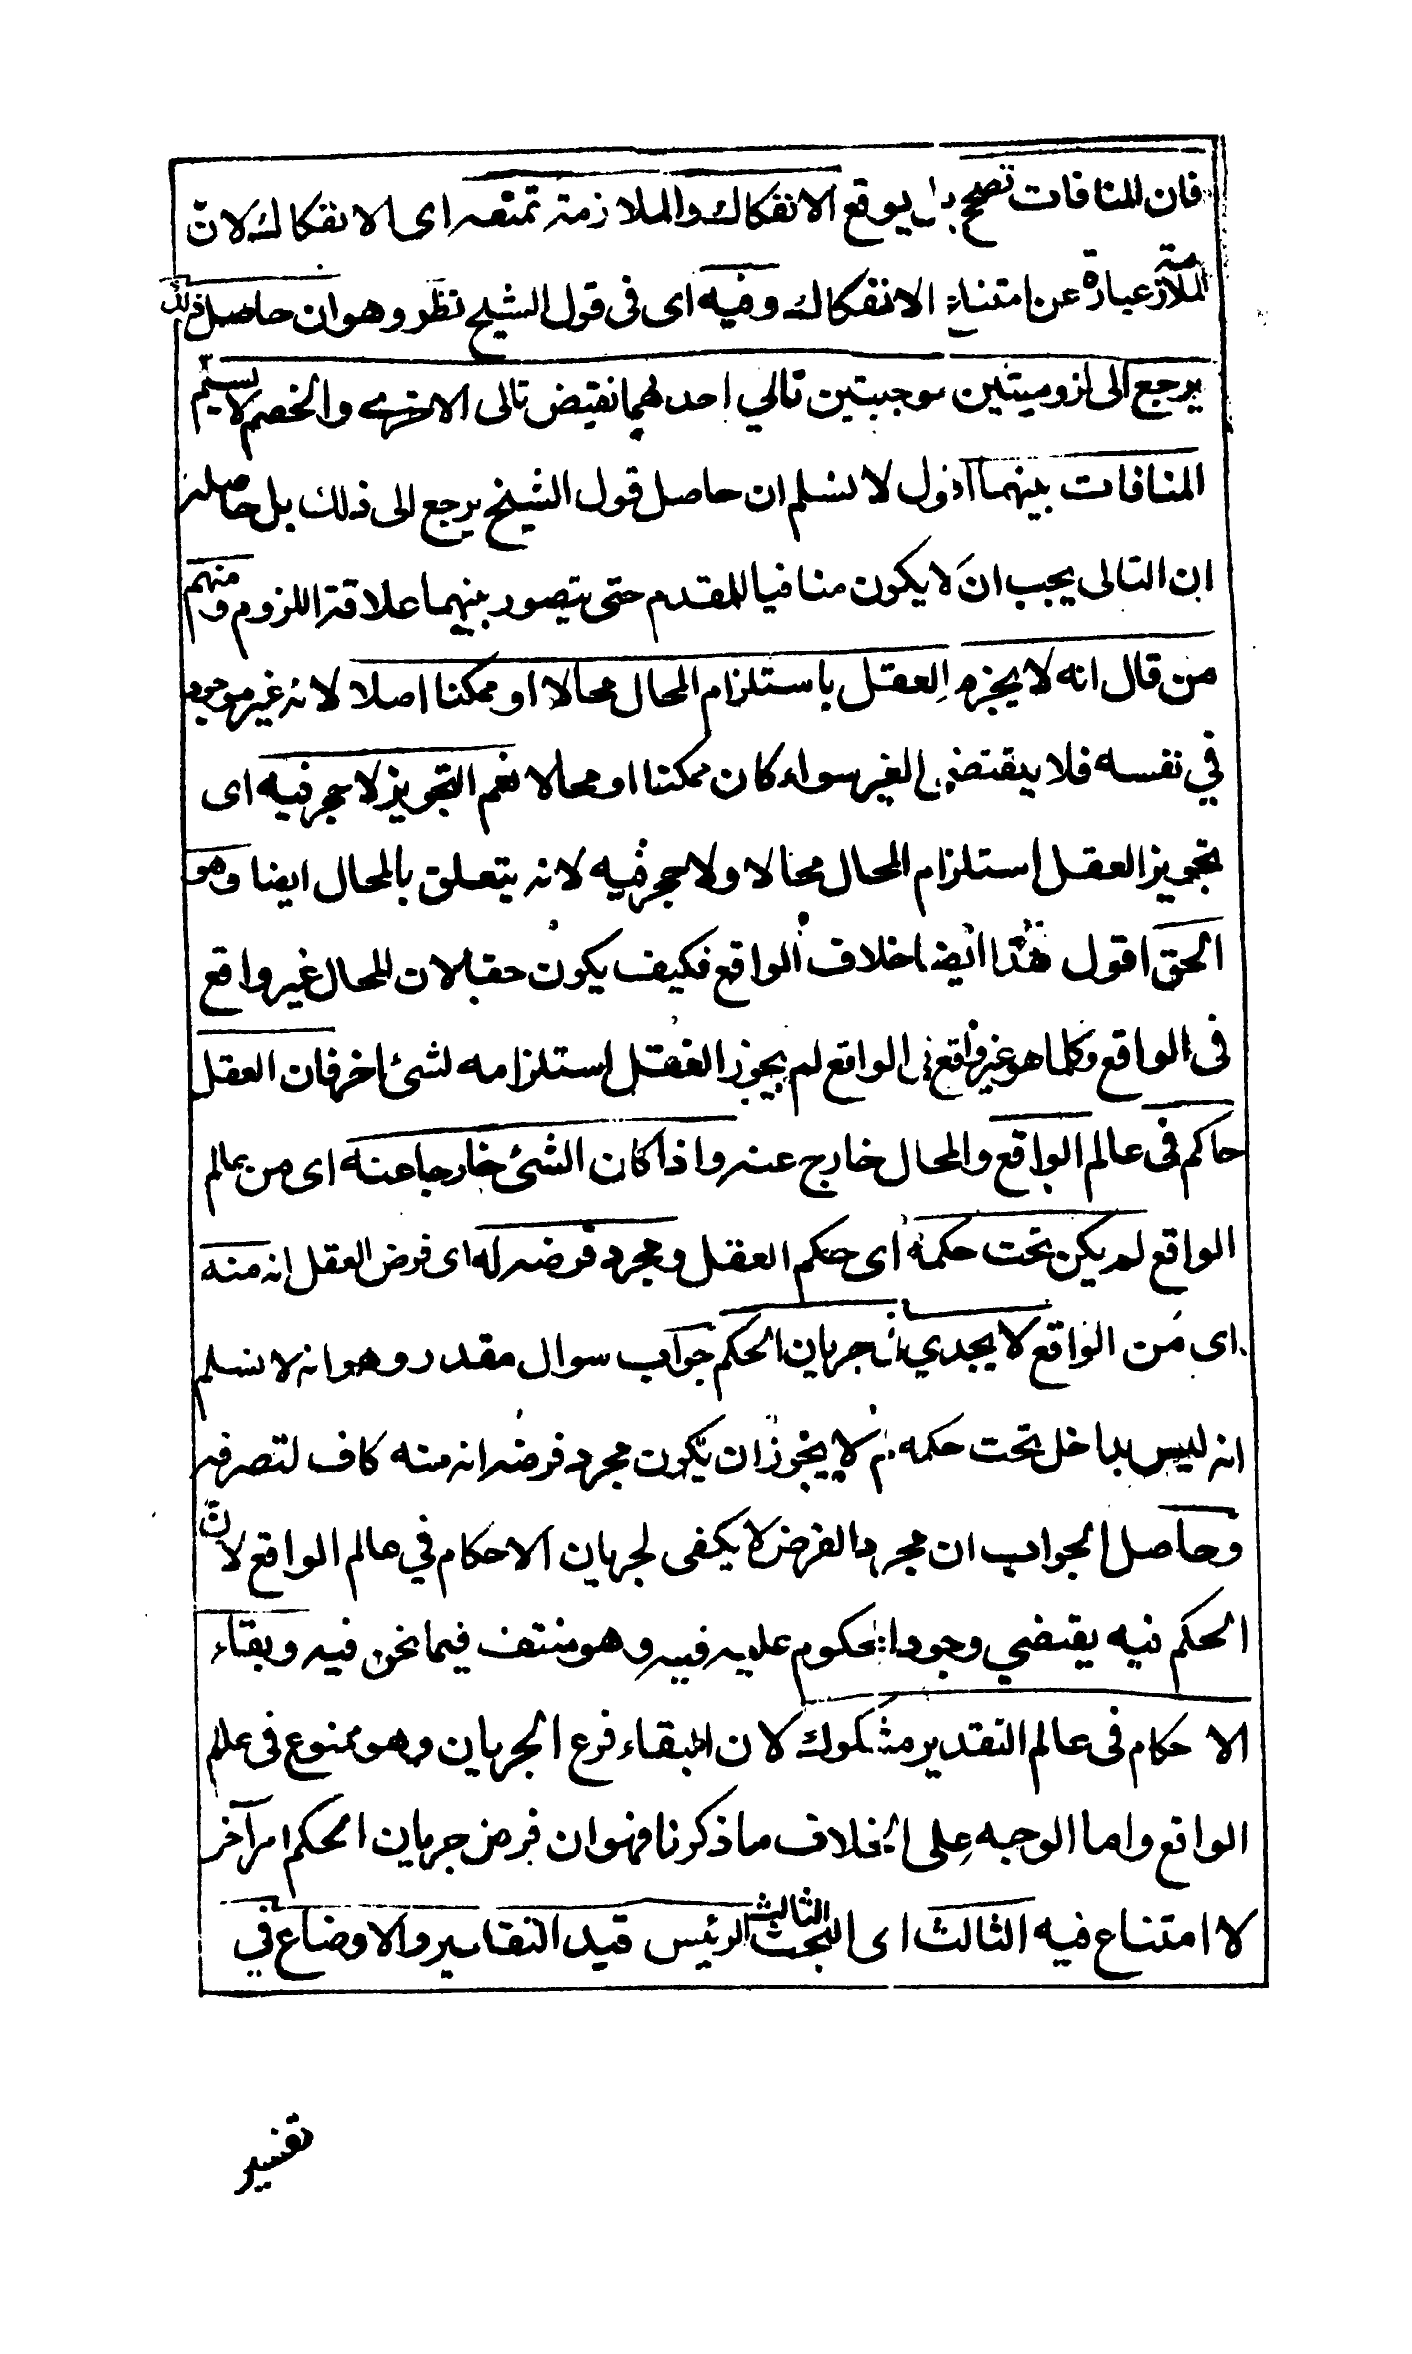 فان المنافات تصحح بل يوقع الانفكاك والملازمة تمنعه اى الانفكاك لانّ
الملازمة عبارة عن امتناع الانفكاك وفيه اى فى قول الشيخ نظر وهو ان حاصل ذلك
يرجع الى لزوميتين موجبتين تالي احدهما نقيض تالى الاخرے والخصم لا يسلّم
المنافات بينهما اقول لا نسلم ان حاصل قول الشيخ يرجع الى ذلك بل حاصله
ان التالى يجب ان لا يكون منافيا للمقدم حتى يتصور بينهما علاقة اللزوم ومنهم
من قال انه لا يجزم العقل باستلزام المحال محالا او ممكنا اصلا لانه غير موجود
في نفسه فلا يقتضى الغير سواء كان ممكنا او محالا نعم التجويز لا حجر فيه اى
تجويز العقل استلزام المحال محالا ولا حجر فيه لانه يتعلق بالمحال ايضا وهو
الحق اقول هذا ايضا خلاف الواقع فكيف يكون حقا لان المحال غير واقع
فى الواقع وكلما هو غير واقع فى الواقع لم يجوز العقل استلزامه لشئ اخر فان العقل
حاكم فى عالم الواقع والمحال خارج عنه واذا كان الشئ خارجا عنه اى من عالم
الواقع لم يكن تحت حكمه اى حكم العقل ومجرد فرضه له اى فرض العقل انه منه
اى من الواقع لا يجدي فى جريان الحكم جواب سوال مقدر وهو انه لا نسلم
انه ليس بداخل تحت حكمه لم لا يجوز ان يكون مجرد فرضه انه منه كاف لتصرفه
وحاصل الجواب ان مجرد الفرض لا يكفى لجريان الاحكام في عالم الواقع لانّ
الحكم فيه يقتضي وجود المحكوم عليه فيه وهو منتف فيما نحن فيه وبقاء
الاحكام فى عالم التقدير مشكوك لان البقاء فرع الجريان وهو ممنوع فى عالم
الواقع واما الوجه على الخلاف ما ذكرنا فهو ان فرض جريان الحكم امر آخر
لا امتناع فيه الثالث اى البحث الثالث الرئيس قيد التقادير والاوضاع في
تفسير